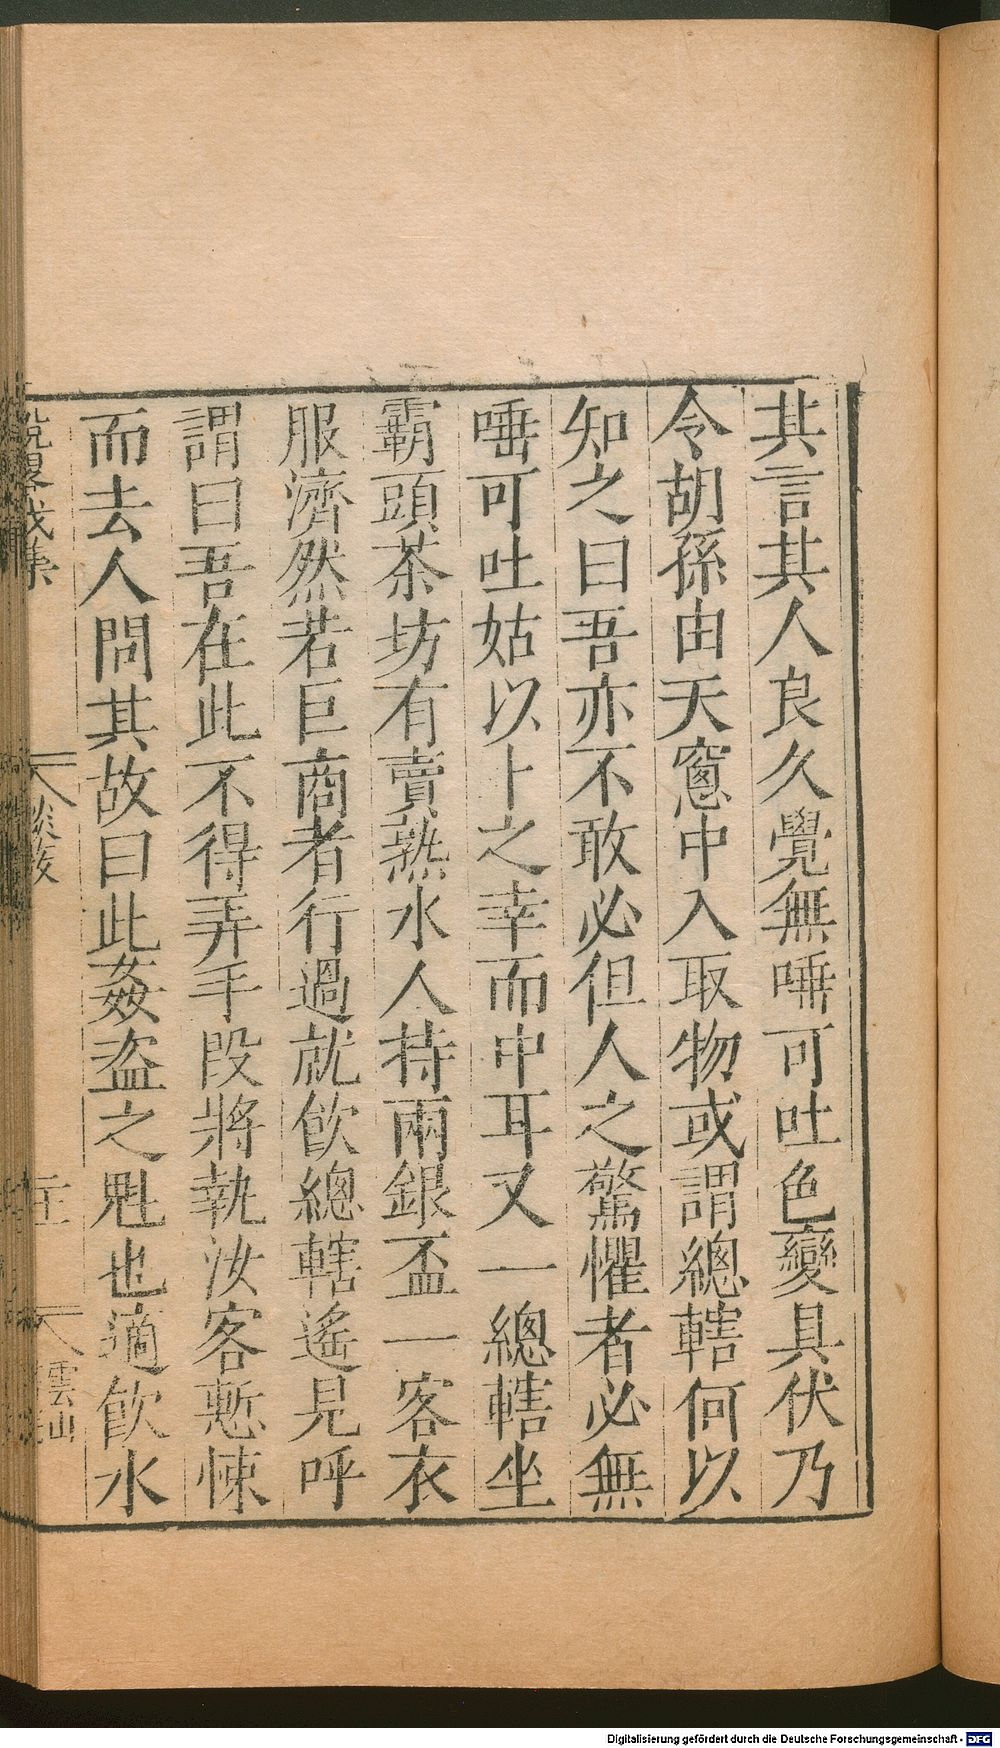 其言其人良久覺無唾可吐色變具伏乃
令胡孫由天窻中入取物或謂總轄何以
知之曰吾亦不敢必但人之驚懼者必無
唾可吐姑以卜之幸而中耳又一總轄坐
霸頭茶坊有賣熟水人持兩銀盃一客衣
服濟然若巨商者行過就飮總轄遙見呼
謂曰吾在此不得弄手段將執汝客慙悚
而去人問其故曰此姦盜之魁也適飮水
雲山
Digitalisierung gefördert durch die Deutsche Forschungsgemeinschaft - DFG